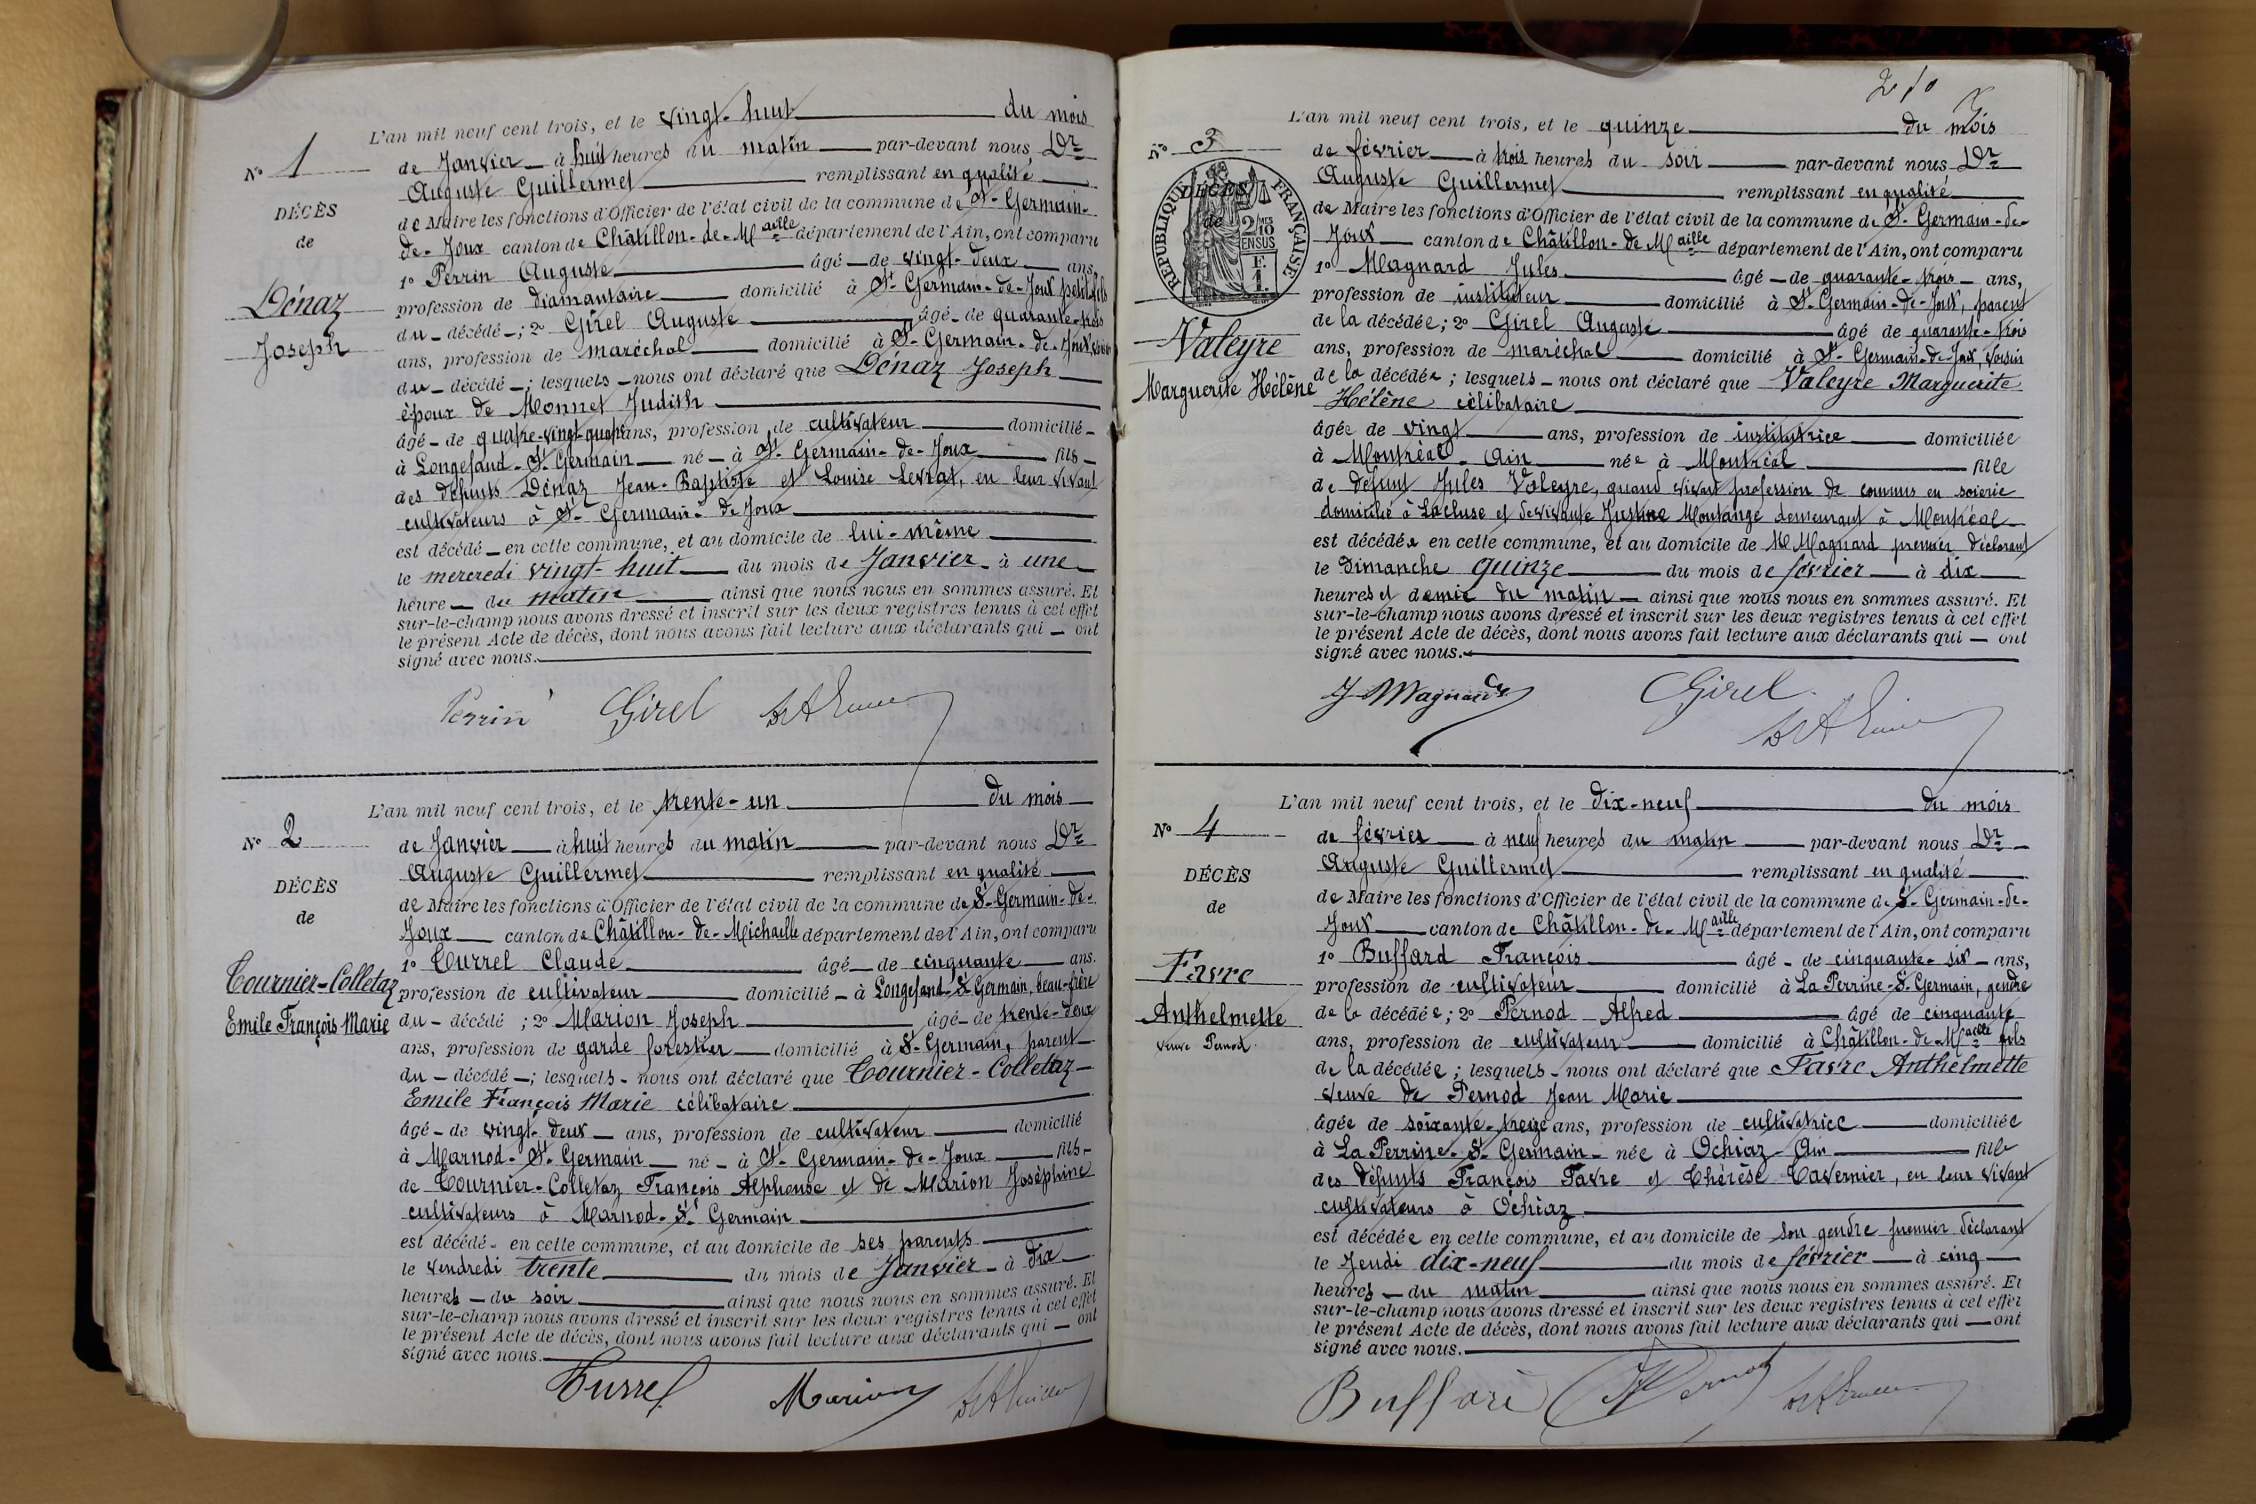 L'an mil neuf cent trois, et le vingt-huit du mois
N° 1
de Janvier à huit heures du matin par-devant nous Dr
Auguste Guillermet remplissant en qualité
DÉCÈS
de Maire les fonctions d'Officier de l'état civil de la commune de St-Germain-
de
de-Joux canton de Châtillon-de-Maille département de l'Ain, ont comparu
1° Perrin Auguste âgé de vingt-deux ans,
Dénaz
profession de diamantaire domicilié à St-Germain-de-Joux petit-fils
du décédé; 2° Girel Auguste âgé de quarante-trois
Joseph
ans, profession de maréchal domicilié à St-Germain-de-Joux, voisin
du décédé; lesquels nous ont déclaré que Dénaz Joseph
époux de Monnet Judith
âgé de quatre-vingt-quatre ans, profession de cultivateur domicilié
à Longefand-St-Germain né à St-Germain-de-Joux fils
des défunts Dénaz Jean-Baptiste et Louise Levrat, en leur vivant
cultivateurs à St-Germain-de Joux
est décédé en cette commune, et au domicile de lui-même
le mercredi vingt-huit du mois de Janvier à une
heure du matin ainsi que nous nous en sommes assuré. Et
sur-le-champ nous avons dressé et inscrit sur les deux registres tenus à cet effet
le présent Acte de décès, dont nous avons fait lecture aux déclarants qui ont
signé avec nous.
Perrin Girel
L'an mil neuf cent trois, et le trente-un du mois
N° 2
de Janvier à huit heures du matin par-devant nous Dr
Auguste Guillermet remplissant en qualité
DÉCÈS
de Maire les fonctions d'Officier de l'état civil de la commune de St-Germain-de-
de
Joux canton de Châtillon-de-Michaille département de l'Ain, ont comparu
1° Turrel Claude âgé de cinquante ans.
Tournier-Colletaz
profession de cultivateur domicilié à Longefand-St Germain, beau-frère
Emile François Marie
du décédé; 2° Marion Joseph âgé de trente-deux
ans, profession de garde forestier domicilié à St-Germain, parent
du décédé; lesquels nous ont déclaré que Tournier-Colletaz
Emile François Marie célibataire
âgé de vingt-deux ans, profession de cultivateur domicilié
à Marnod-St-Germain né à St-Germain-de-Joux fils
de Tournier-Colletaz François Alphonse et de Marion Joséphine
cultivateurs à Marnod-St Germain
est décédé en cette commune, et au domicile de ses parents
le vendredi trente du mois de Janvier à dix
heures du soir ainsi que nous nous en sommes assuré. Et
sur-le-champ nous avons dressé et inscrit sur les deux registres tenus à cet effet
le présent Acte de décès, dont nous avons fait lecture aux déclarants qui ont
signé avec nous.
Turrel Marion
210
3
L'an mil neuf cent trois, et le quinze du mois
N° 3
de février à trois heures du soir par-devant nous Dr
Auguste Guillermet remplissant en qualité
DÉCÈS
de
RÉPUBLIQUE FRANÇAISE
2/10 EN SUS
F. 1.
de Maire les fonctions d'Officier de l'état civil de la commune de St-Germain-de-
Joux canton de Châtillon-de Maille département de l'Ain, ont comparu
1° Magnard Jules âgé de quarante-trois ans,
profession de instituteur domicilié à St-Germain-de-Joux, parent
Valeyre
de la décédée; 2° Girel Auguste âgé de quarante-trois
ans, profession de maréchal domicilié à St-Germain-de-Joux, voisin
Marguerite Hélène
de la décédée; lesquels nous ont déclaré que Valeyre Marguerite
Hélène célibataire
âgée de vingt ans, profession de institutrice domiciliée
à Montréal-Ain née à Montréal fille
de défunt Jules Valeyre, quand vivait profession de commis en soierie
domicilié à Lacluse et de vivante Justine Montange demeurant à Montréal
est décédée en cette commune, et au domicile de M Magnard premier déclarant
le Dimanche quinze du mois de février à dix
heures et demie du matin ainsi que nous nous en sommes assuré. Et
sur-le-champ nous avons dressé et inscrit sur les deux registres tenus à cet effet
le présent Acte de décès, dont nous avons fait lecture aux déclarants qui ont
signé avec nous.
J Magnard Girel
L'an mil neuf cent trois, et le dix-neuf du mois
N° 4
de février à neuf heures du matin par-devant nous Dr
Auguste Guillermet remplissant en qualité
DÉCÈS
de Maire les fonctions d'Officier de l'état civil de la commune de St-Germain-de-
de
Joux canton de Châtillon-de-Maille département de l'Ain, ont comparu
1° Buffard François âgé de cinquante-six ans,
Favre
profession de cultivateur domicilié à La Perrine-St-Germain, gendre
Anthelmette
de la décédée; 2° Pernod Alfred âgé de cinquante
veuve Pernod
ans, profession de cultivateur domicilié à Châtillon-de-Maille fils
de la décédée; lesquels nous ont déclaré que Favre Anthelmette
veuve de Pernod Jean Marie
âgée de soixante-treize ans, profession de cultivatrice domiciliée
à La Perrine-St Germain née à Ochiaz Ain fille
des défunts François Favre et Thérèse Tavernier, en leur vivant
cultivateurs à Ochiaz
est décédée en cette commune, et au domicile de son gendre premier déclarant
le Jeudi dix-neuf du mois de février à cinq
heures du matin ainsi que nous nous en sommes assuré. Et
sur-le-champ nous avons dressé et inscrit sur les deux registres tenus à cet effet
le présent Acte de décès, dont nous avons fait lecture aux déclarants qui ont
signé avec nous.
Buffard Pernod